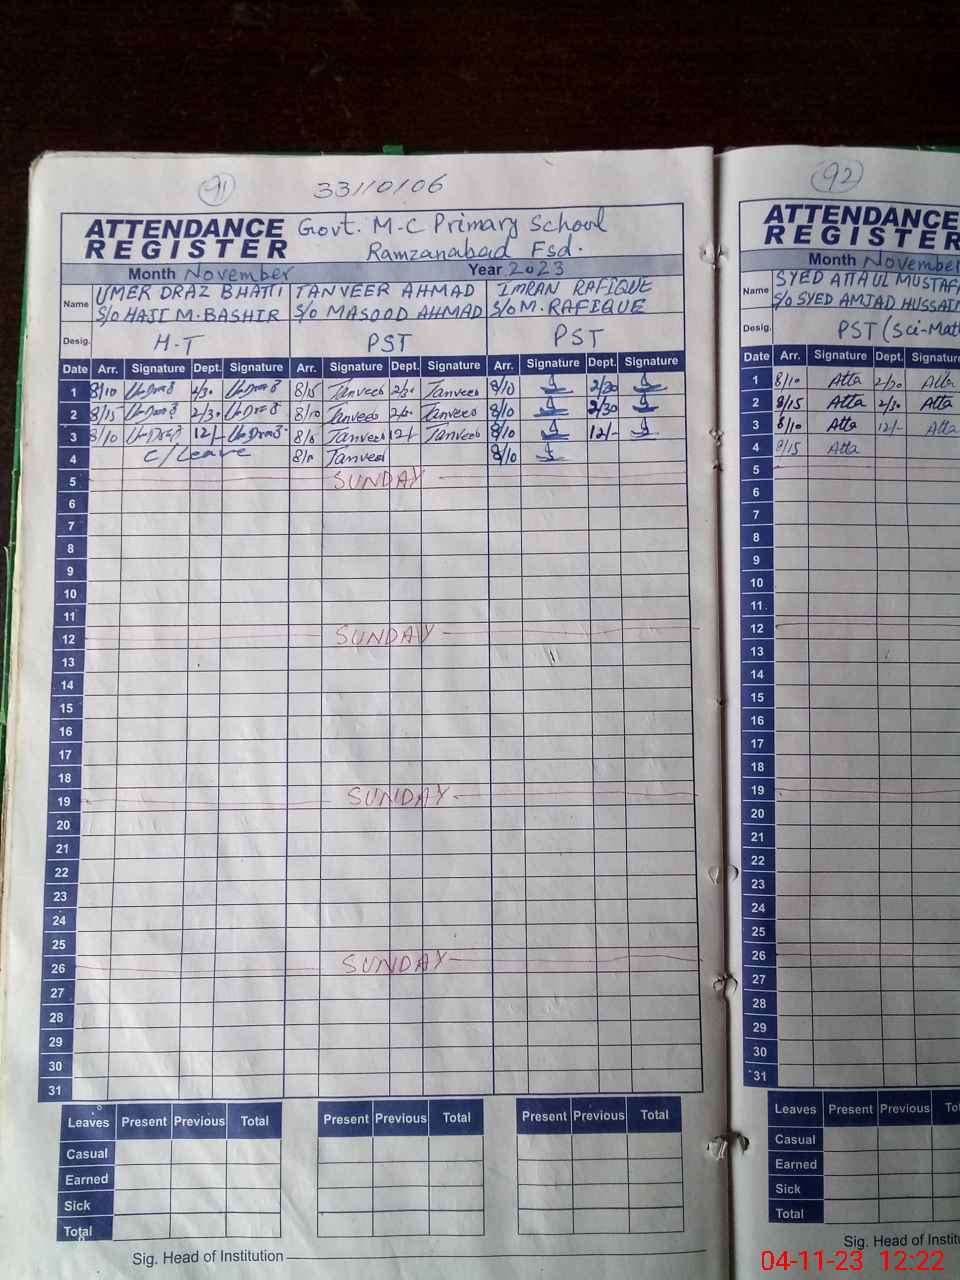 91
33110106
ATTENDANCE REGISTER
Govt. M-C Primary School
Ramzanabad Fsd.
Month November Year 2023
Name UMER DRAZ BHATTI TANVEER AHMAD IMRAN RAFIQUE
S/o HAJI M. BASHIR S/o MASOOD AHMAD S/o M. RAFIQUE
Desig. H-T PST PST
Date Arr. Signature Dept. Signature Arr. Signature Dept. Signature Arr. Signature Dept. Signature
1 8/10 2/30 8/15 Tanveer 2/30 Tanveer 8/10 2/30
2 8/15 2/30 8/10 Tanveer Tanveer 8/10 2/30
3 8/10 12/- Tanveer 12/- Tanveer 8/10 12/-
4 C/Leave Tanveer 8/10
5 SUNDAY
6
7
8
9
10
11
12 SUNDAY
13
14
15
16
17
18
19 SUNDAY
20
21
22
23
24
25
26 SUNDAY
27
28
29
30
31
Leaves Present Previous Total Present Previous Total Present Previous Total
Casual
Earned
Sick
Total
Sig. Head of Institution
92
ATTENDANCE
REGISTER
Month November
Name SYED ATTA UL
S/o SYED AMJAD
Desig. PST (Sci-Math
Date Arr. Signature Dept. Signature
1 8/10 Atta 2/30 Atta
2 8/15 Atta 2/30 Atta
3 8/10 Atta 12/- Atta
4 8/15 Atta
5
6
7
8
9
10
11
12
13
14
15
16
17
18
19
20
21
22
23
24
25
26
27
28
29
30
31
Leaves Present Previous
Casual
Earned
Sick
Total
Sig. Head of
04-11-23 12:22